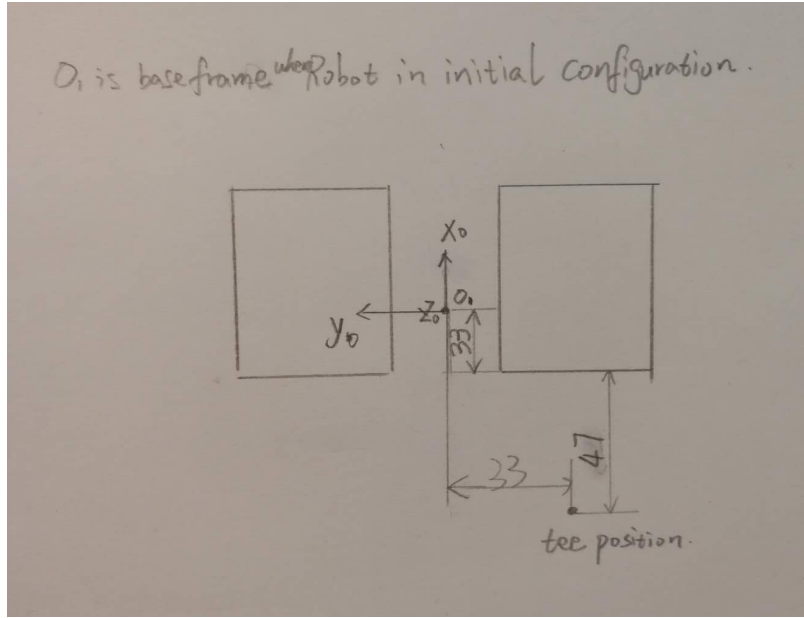 O, is baseframe when Robot in initial configuration.
X₀
O.
Z₀
y₀
33
47
33
tee position.